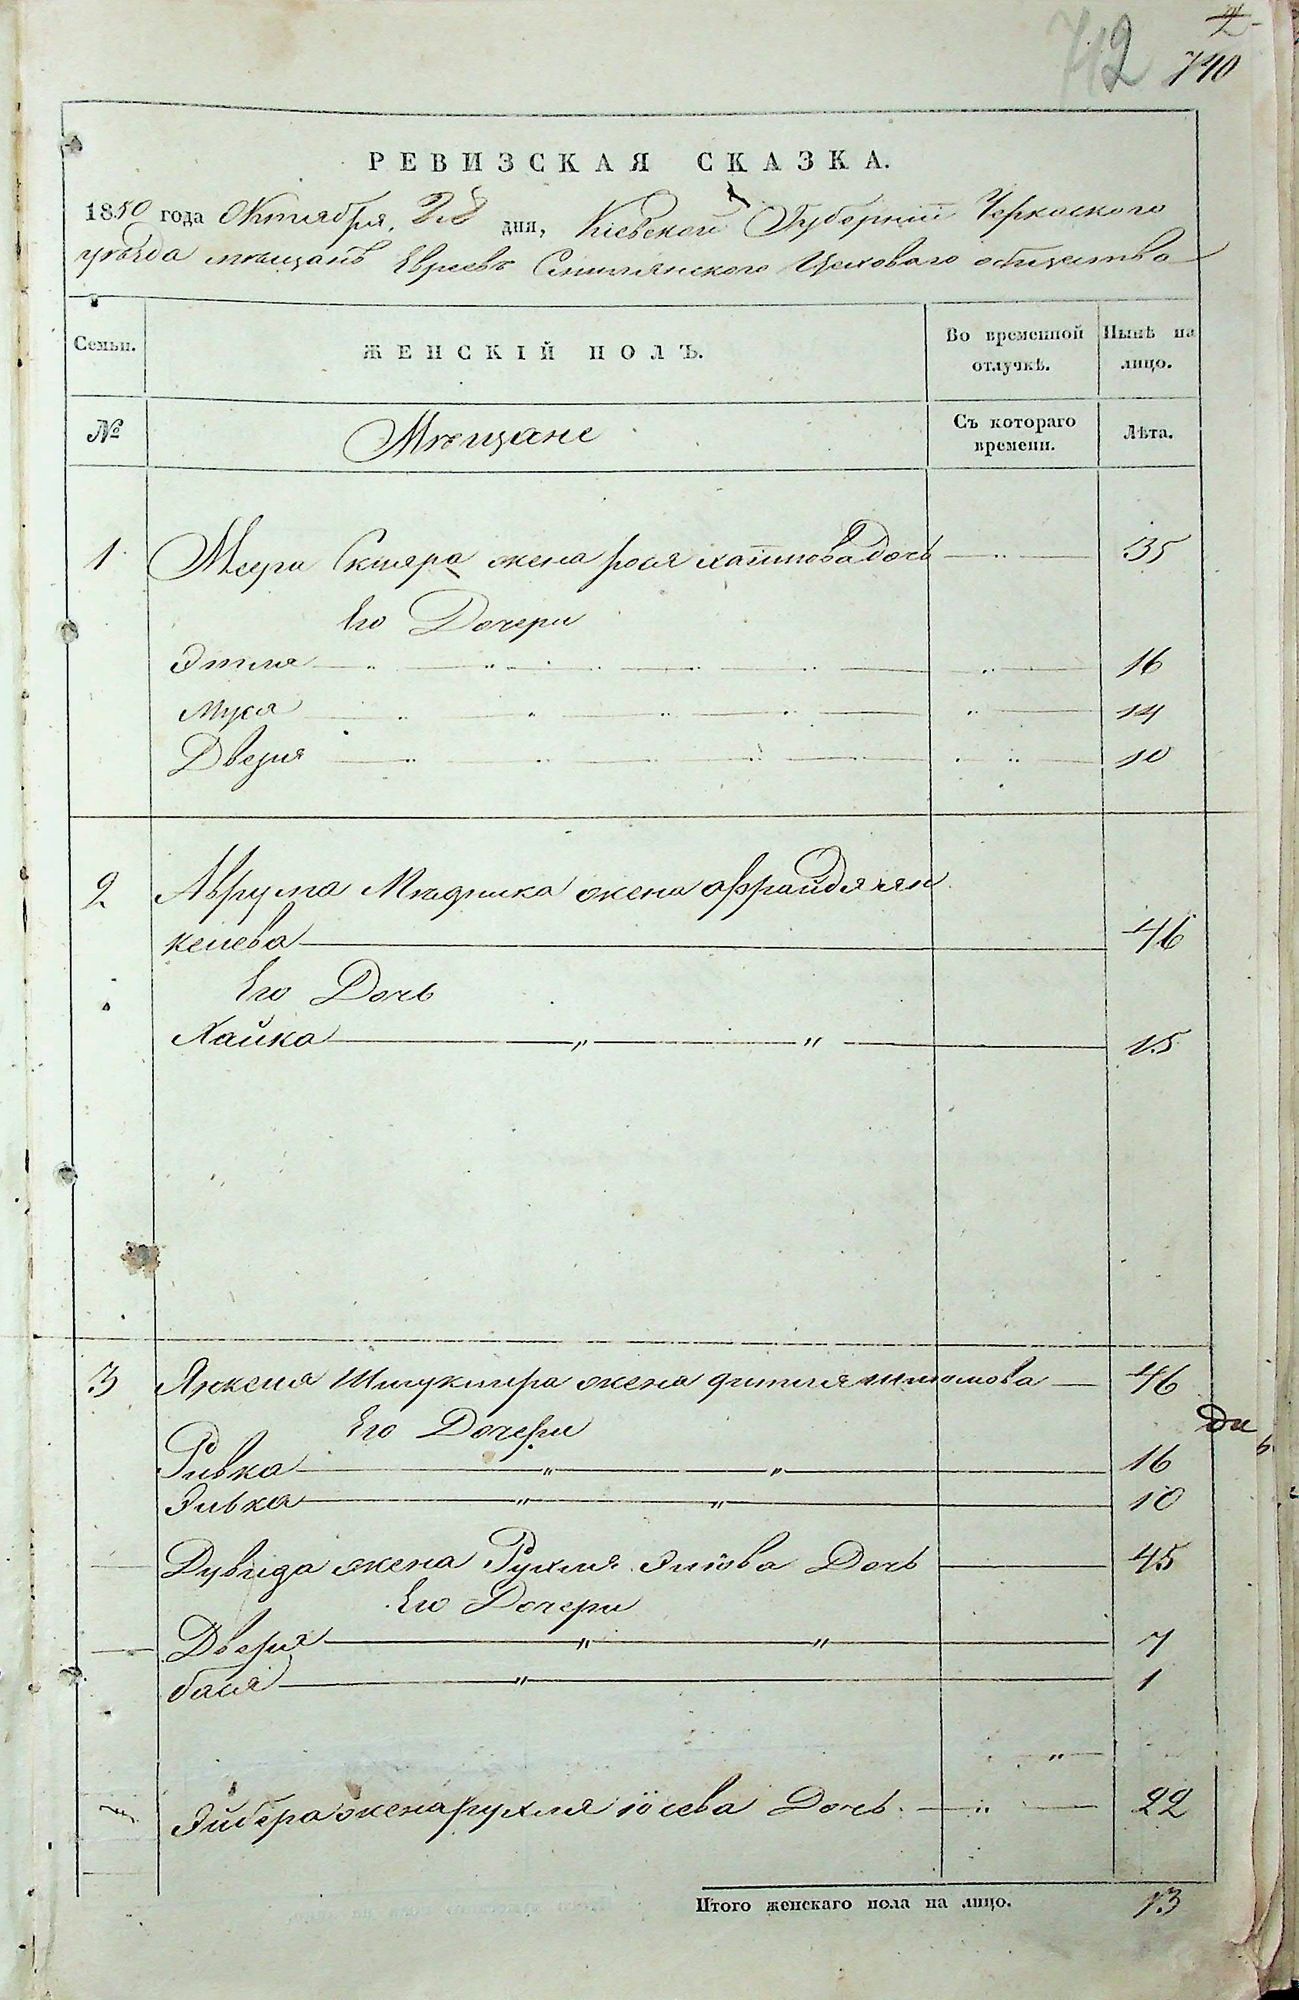 2
712 740
РЕВИЗСКАЯ СКАЗКА.
1850 года Октября 22 дня, Кіевской Губерніи Черкаского
уѣзда мѣщанъ Евреевъ Смилянского Цеховаго общества
Семьи. ЖЕНСКІЙ ПОЛЪ. Во временной отлучкѣ. Нынѣ на лицо.
№ Мѣщане Съ котораго времени. Лѣта.
1 Меера Скляра жена рося хаимова дочь — „ — 35
Его Дочери
Этля 16
Муся 14
Двезя 10
2 Аврума Мѣдника жена Фрайдя янкелева
46
Его Дочь
Хайка — „ — „ — 15
3 Янкеля Шмуклира жена шлиомова — 46
Его Дочери ди
Ривка — „ — „ — 16
Эивка — „ — „ — 10
Дувида жена Рухля Дочь — 45
Его Дочери
Двезя — „ — „ — 7
бася — „ — 1
„ —
жена рухля іосева Дочь — „ — 22
Итого женскаго пола на лицо. 13